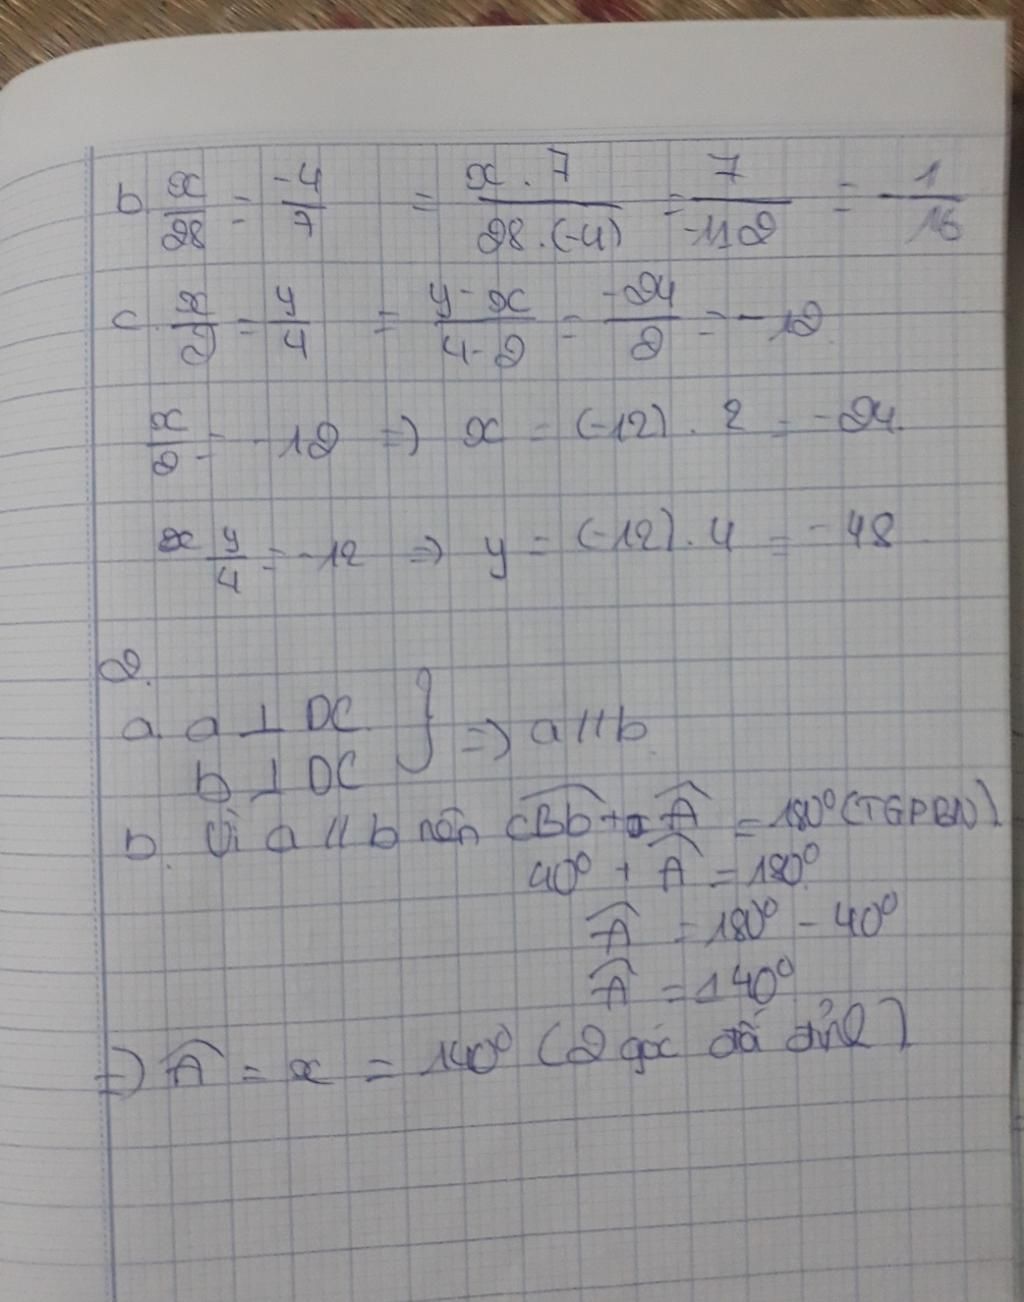 b. x/28 = -4/7 = x.7/28.(-4) = 7/-112 = -1/16
c. x/2 = y/4 = y-x/4-2 = -24/2 = -12
x/2 = -12 => x = (-12).2 = -24.
x y/4 = -12 => y = (-12).4 = -48
2.
a. a ⊥ DC } => a // b
b ⊥ DC
b. Vì a // b nên CBb + A = 180° (TGPBN)
40° + A = 180°
A = 180° - 40°
A = 140°
=> A = x = 140° (2 góc đđ)